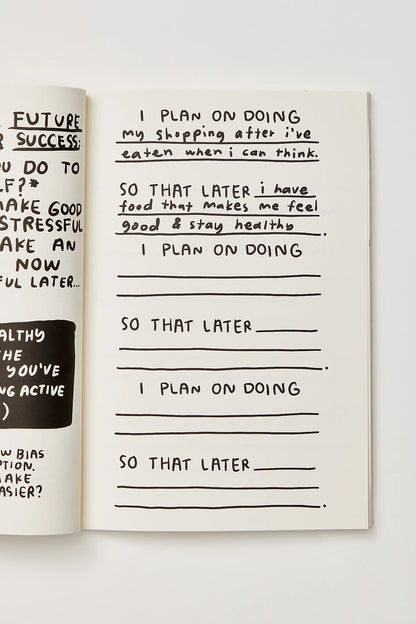 FUTURE
SUCCESS:
DO TO
MAKE GOOD
STRESSFUL
AN
NOW
LATER...
YOU'VE
ACTIVE
)
BIAS
EASIER?
I PLAN ON DOING
my shopping after i've
eaten when i can think.
SO THAT LATER i have
food that makes me feel
good & stay healthy.
I PLAN ON DOING
SO THAT LATER
.
I PLAN ON DOING
SO THAT LATER
.